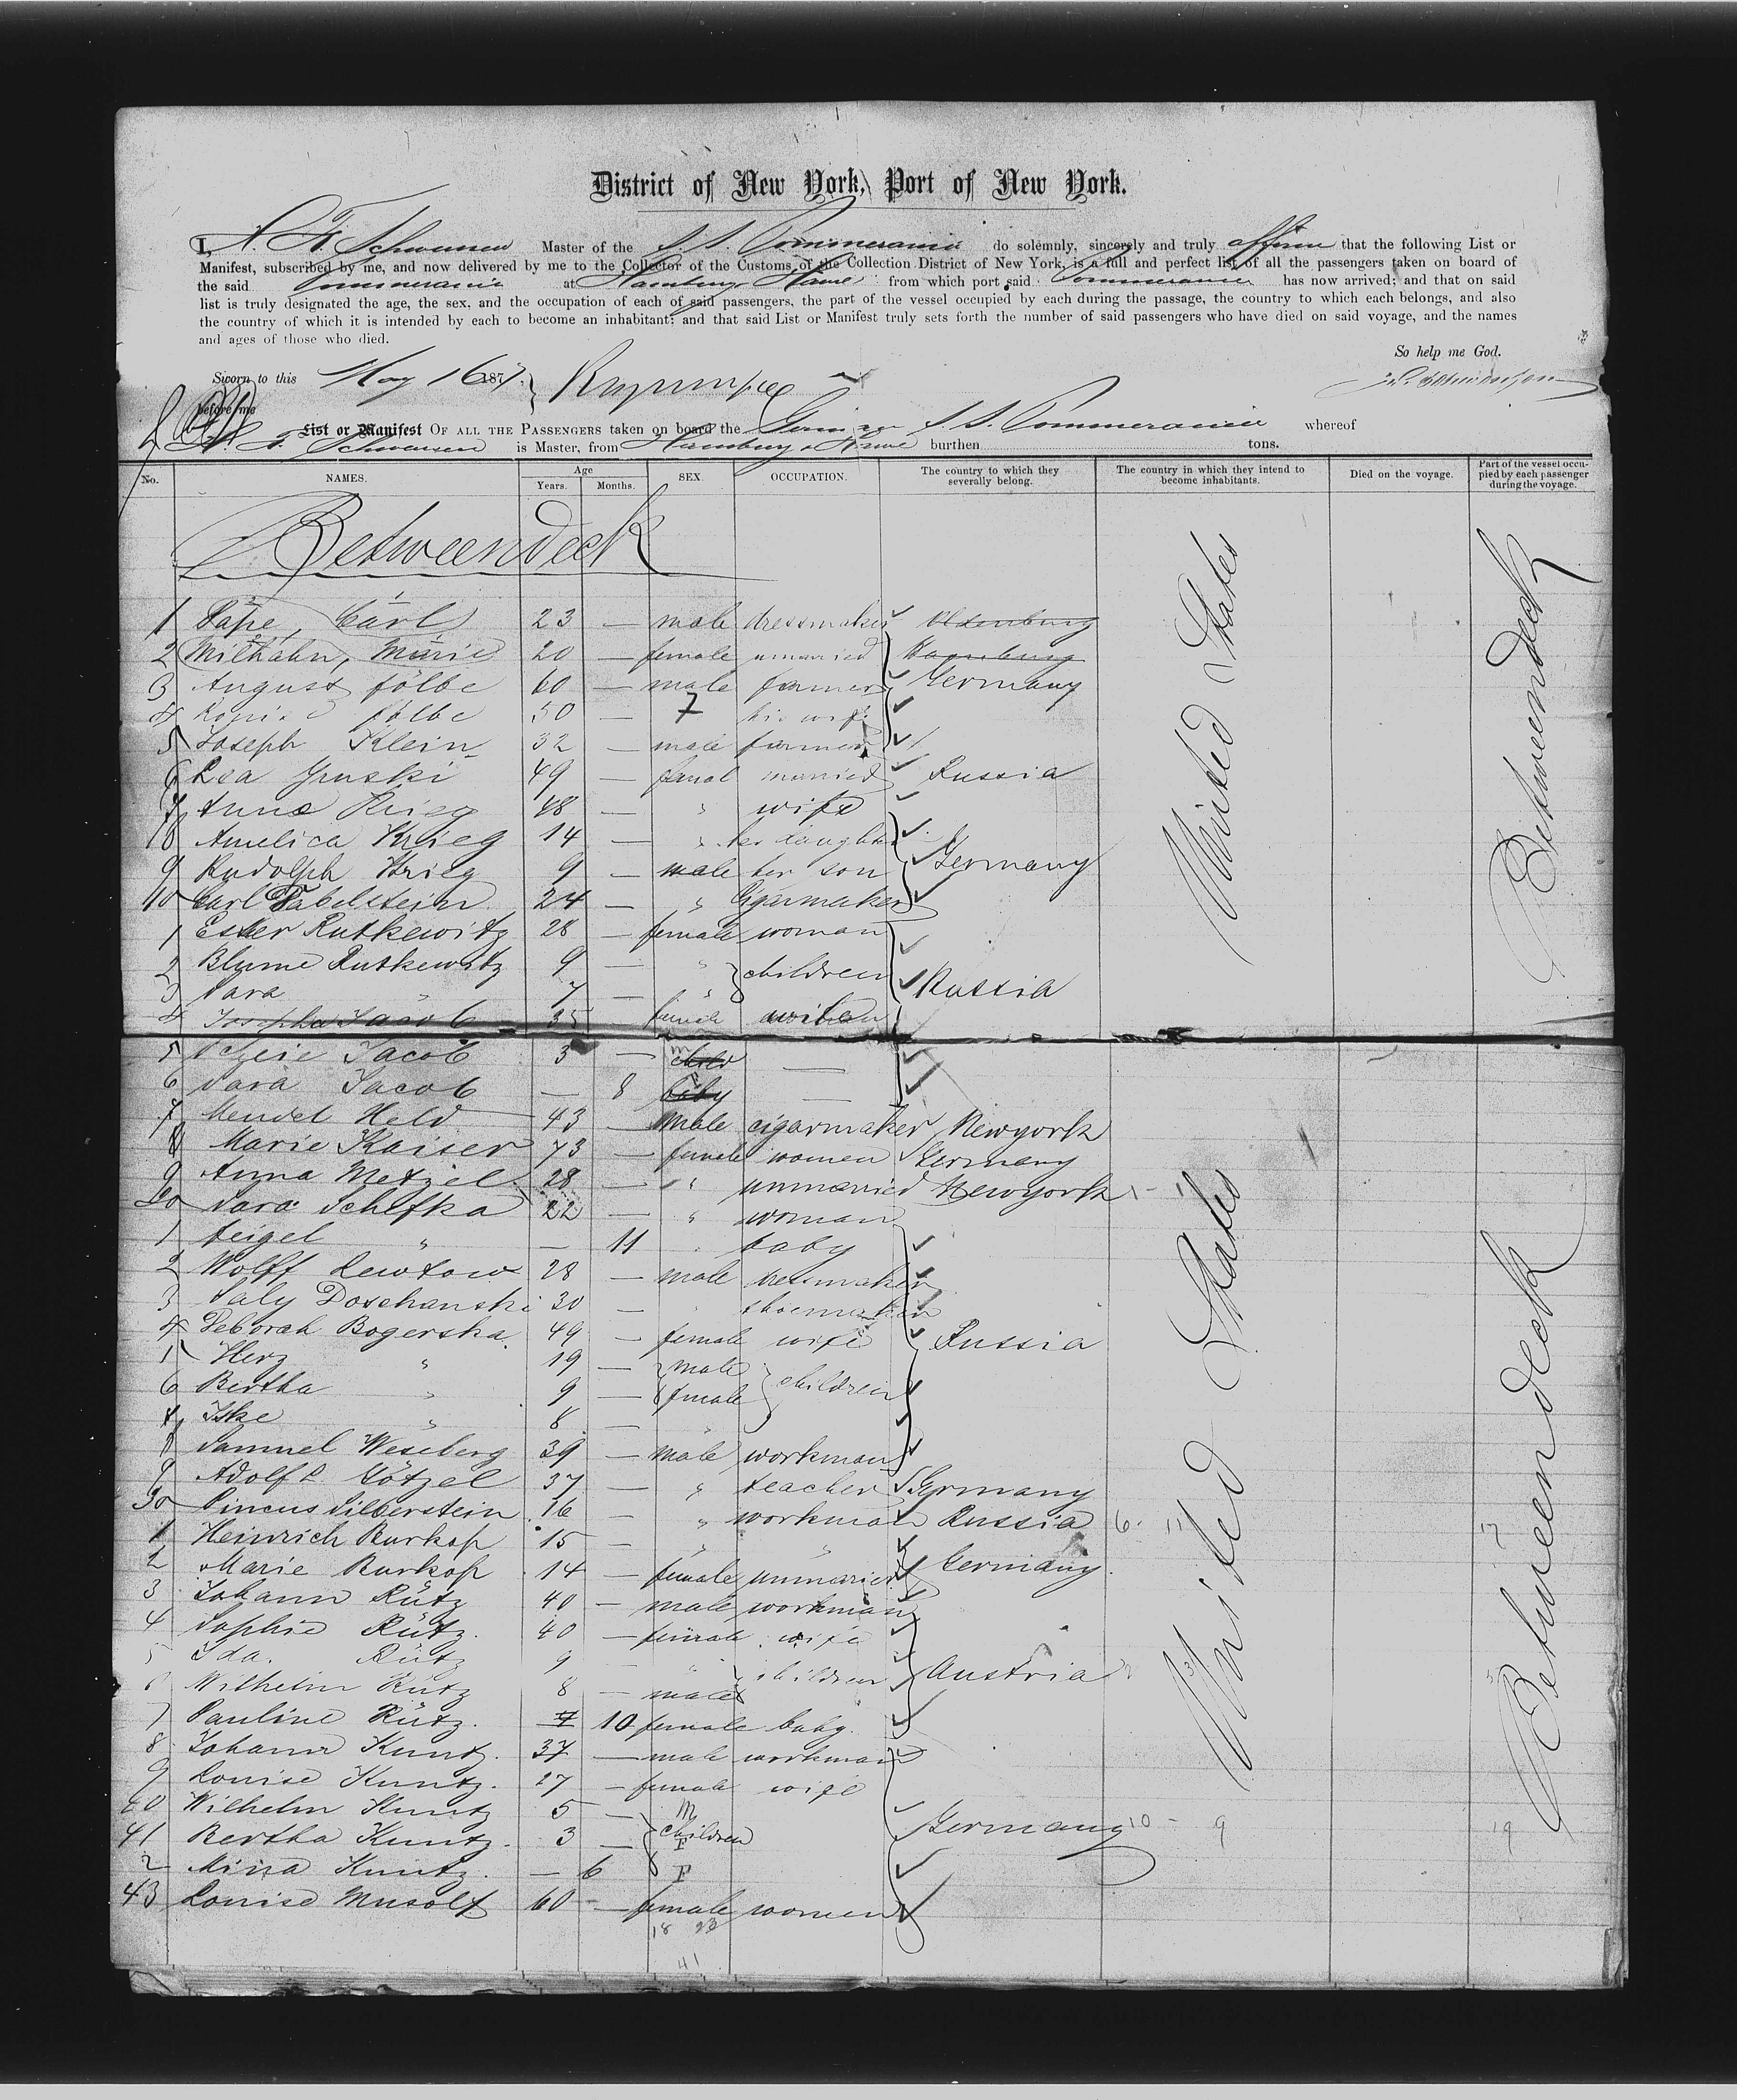 District of New York, Port of New York.
I, A. F. Schwensen Master of the S. S. Pommerania do solemnly, sincerely and truly affirm that the following List or
Manifest, subscribed by me, and now delivered by me to the Collector of the Customs of the Collection District of New York, is a full and perfect list of all the passengers taken on board of
the said Pommerania at Hamburg, Havre from which port said Pommerania has now arrived; and that on said
list is truly designated the age, the sex, and the occupation of each of said passengers, the part of the vessel occupied by each during the passage, the country to which each belongs, and also
the country of which it is intended by each to become an inhabitant; and that said List or Manifest truly sets forth the number of said passengers who have died on said voyage, and the names
and ages of those who died.
So help me God.
Sworn to this May 16 187
before me
List or Manifest OF ALL THE PASSENGERS taken on board the German S. S. Pommerania whereof
A. F. Schwensen is Master, from Hamburg & Havre burthen tons.
No. NAMES. Age Years. Months. SEX. OCCUPATION. The country to which they severally belong. The country in which they intend to become inhabitants. Died on the voyage. Part of the vessel occupied by each passenger during the voyage.
Betweendeck
United States
Betweendeck
1 Päpe, Carl 23 — male dressmaker Oldenburg
2 Milhahn, Marie 20 — female unmarried Hamburg
3 August Fölbe 60 — male farmer Germany
4 Fölbe 50 — his wife
5 Joseph Klein 32 — male farmer
6 Lea Gruski 49 — femal married Russia
7 Anna Krieg 48 — " wife
8 Amelica Krieg 14 — " her daughter
9 Rudolph Krieg 9 — male her son Germany
10 Carl Fabelstein 24 — " Cigarmaker
1 Ester Rutkewitz 28 — female woman
2 Blume Rutkewitz 9 — " children
3 Sara " 7 — " Russia
4 Josepha Jacob 35 female wife
5 Jacob 3 — child —
6 Sara Jacob — 8 baby —
7 Mendel Held 43 — male cigarmaker Newyork
8 Marie Kaiser 73 — female women Germany
9 Anna Metzel 28 — " unmarried Newyork
20 Sara Schefka 22 — " woman
1 Feigel " — 11 " baby
2 Wolff Lewtow 28 — male dressmaker
3 Saly Doschanski 30 — " shoemaker
4 Deborah Bogerska 49 — female wife Russia
5 Herz " 19 — male children
6 Bertha " 9 — female
7 Iske " 8 — "
8 Samuel Weseberg 39 — male workman
9 Adolf Götzel 37 — " teacher Germany
30 Pincus Silberstein 16 — " workman Russia
1 Heinrich Burkop 15 — " "
2 Marie Burkop 14 — female unmaried Germany
3 Johann Rütz 40 — male workman
4 Sophie Rütz 40 — female wife
5 Ida. Rütz 9 — " children Austria
6 Wilhelm Rütz 8 — male
7 Pauline Rütz. 10 female baby.
8 Johann Kuntz. 37 — male workman
9 Louise Kuntz. 27 — female wife
40 Wilhelm Kuntz 5 — M children
41 Bertha Kuntz. 3 — F Germany
2 Mina Kuntz. — 6 F
43 Louise Musolf 60 — female women
18 23
41
United States
Betweendeck